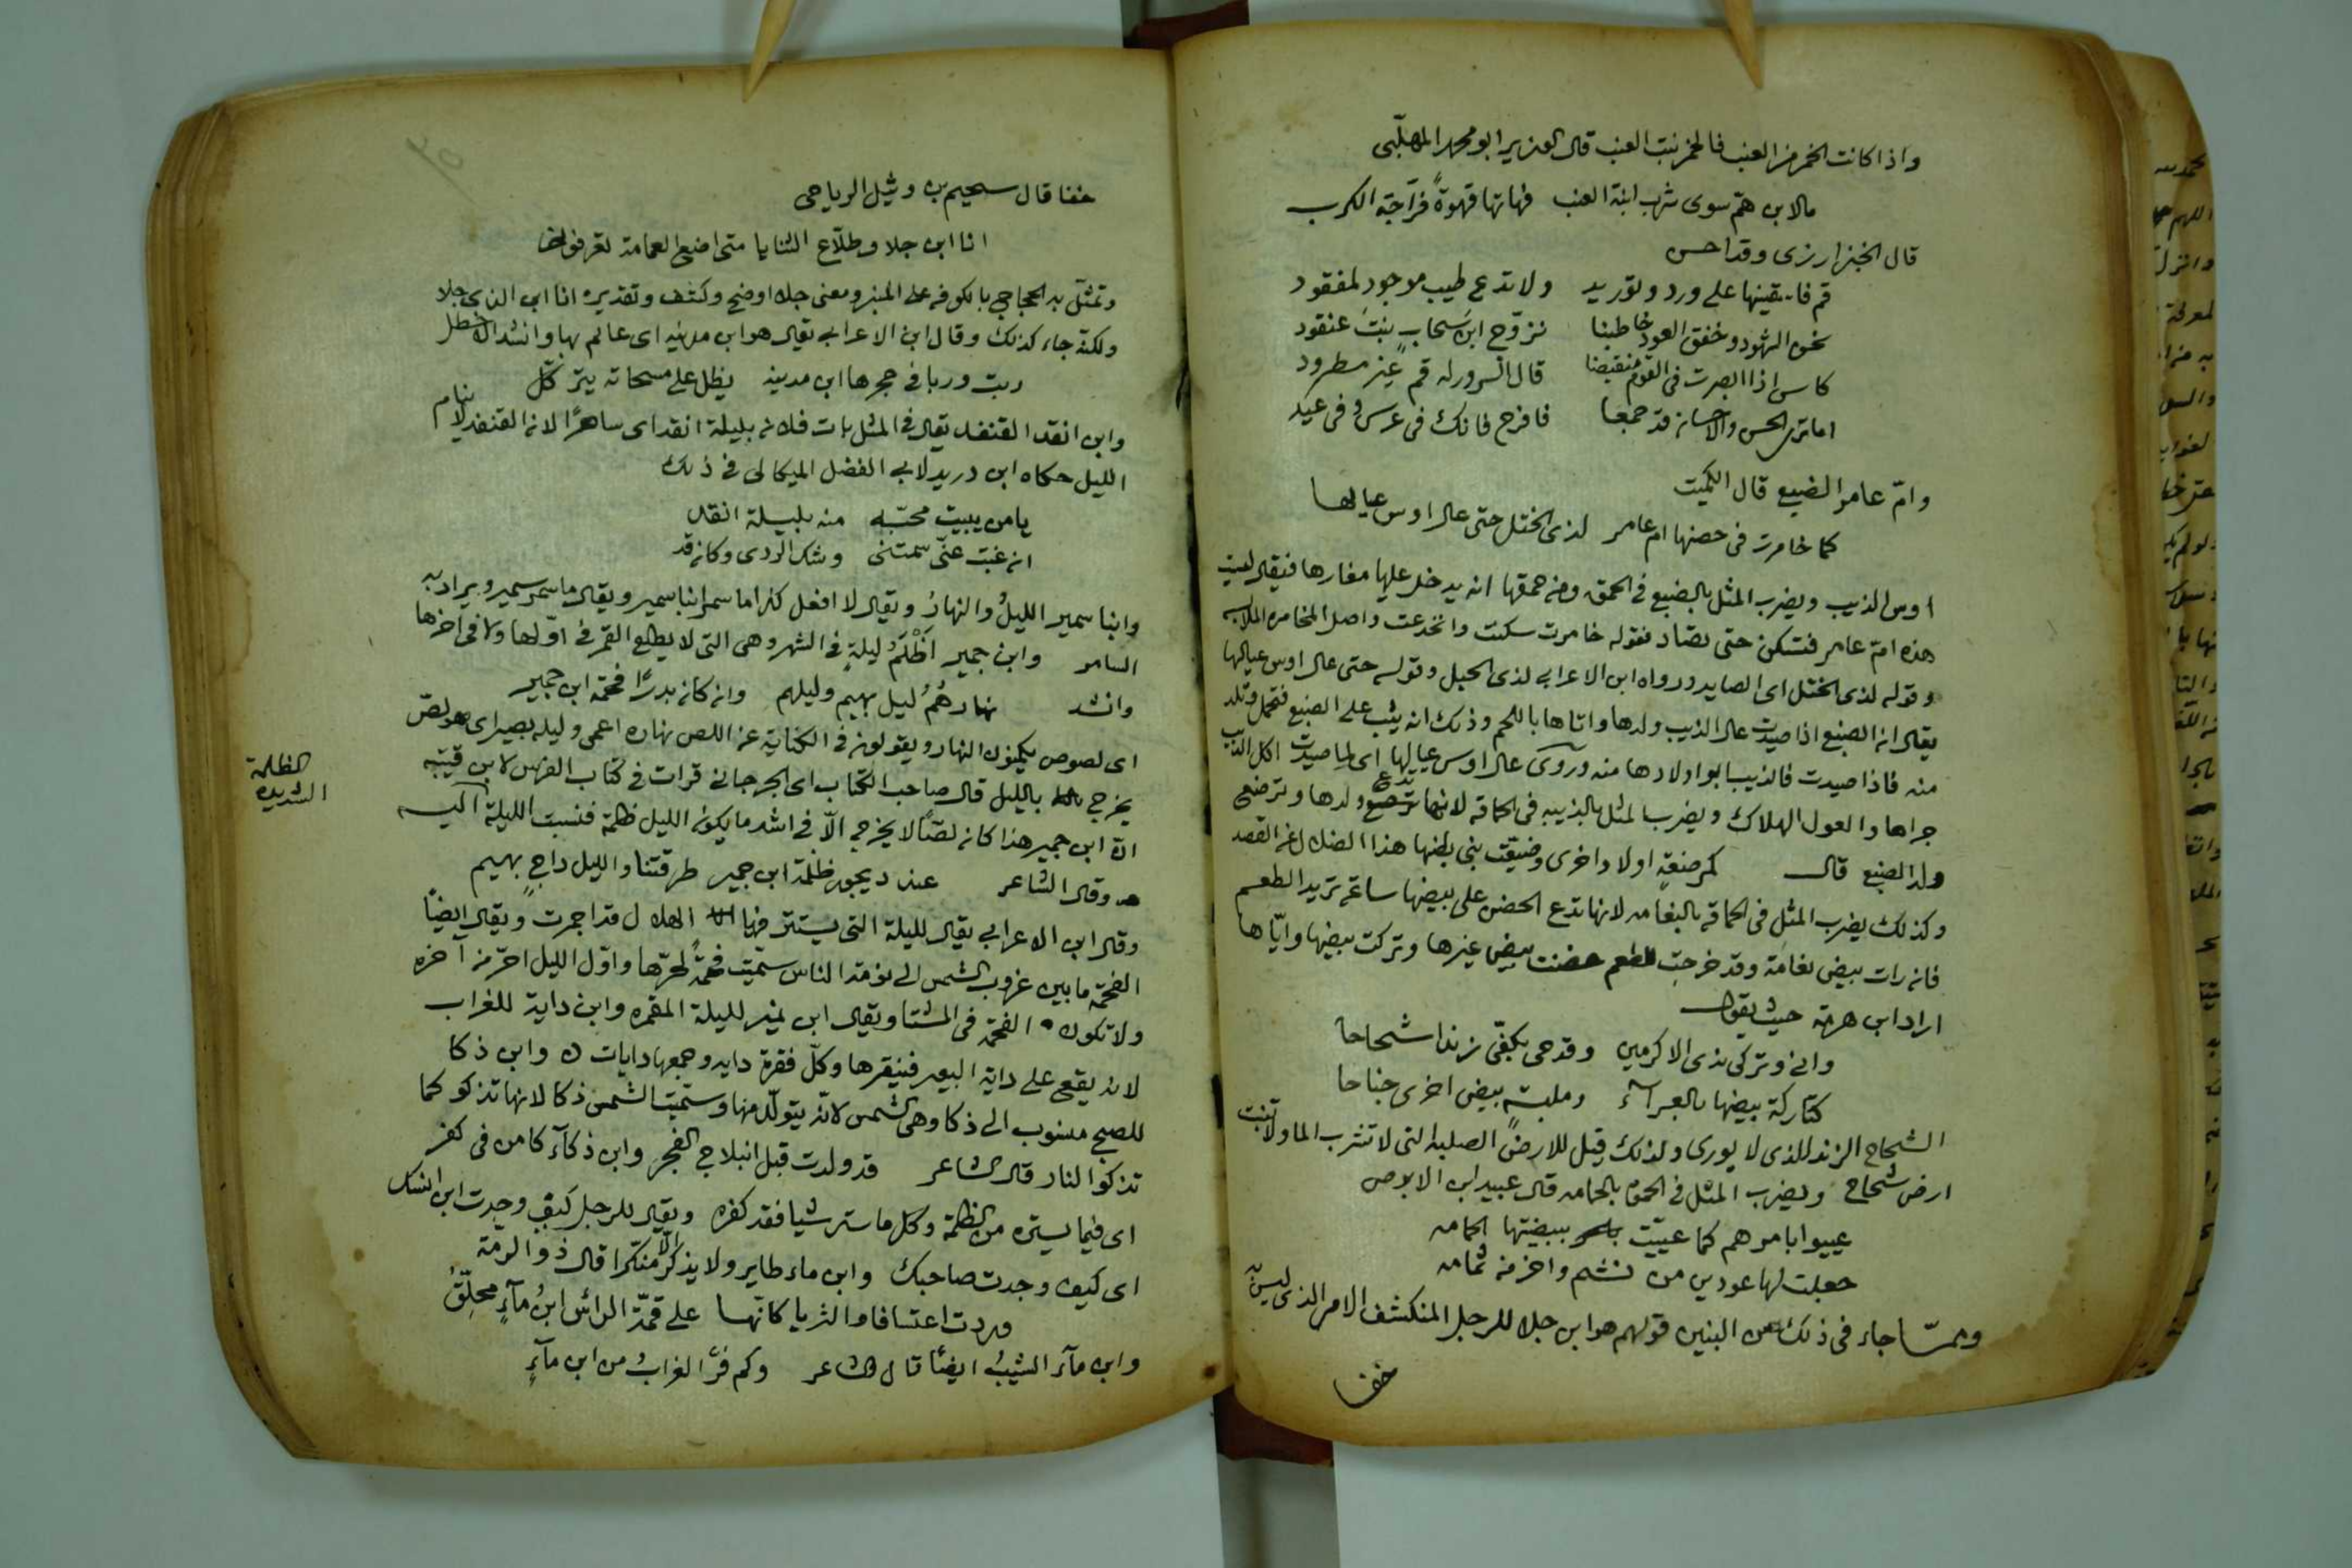 واذا كانت الخمر من العنب فالخمر بنت العنب قال الوزير ابو محمد المهلّبى
مالابن همّ سوى شرب ابنة العنب فهاتها قهوةً فرّاجة الكرب
قال الخبزارزى وقد احسن
قم فاسقينها على ورد وتوريد ولا تدع طيب موجود لمفقود
نحن الشهود وخفق العود خاطبنا نزوّج ابن سحابٍ بنت عنقود
كاس اذا ابصرت فى القوم منقبضا قال السرور له قم غير مطرود
اما ترى الحسن والاحسان قد جمعا فافرح فانك فى عرس وفى عيد
وامّ عامر الضبع قال الكميت
كما خامرت فى حضنها ام عامر لذى الختل حتى عال اوس عيالها
اوس الذيب ويضرب المثل بالضبع فى الحمق ومن حمقها انه يدخل عليها مغارها فيقال ليست
هذه امّ عامر فتسكن حتى تصاد فقوله خامرت سكنت وانخدعت واصل المخامره الملابسه
وقوله لذى الختل اى الصايد ورواه ابن الاعرابى لذى الحبل وقوله حتى عال اوس عيالها
يقال ان الضبع اذا صيدت عال الذيب ولدها واتاها باللحم وذلك انه يثب على الضبع فتحمل وتلد
منه فاذا صيدت فالذيب ابو اولادها منه وروى عال اوس عيالها اى لما صيدت اكل الذيب
جراها والعول الهلاك ويضرب المثل بالذيبه فى الحماقه لانها تدع ولدها وترضع
ولد الضبع قال كمرضعةٍ اولاد اخرى وضيعّت بنى بطنها هذا الضلال عن القصد
وكذلك يضرب المثل فى الحماقه بالنعامه لانها تدع الحضن على بيضها ساعة تريد الطعم
فان رات بيض نعامة وقد خرجت للطعم حضنت بيض غيرها وتركت بيضها وايّاها
اراد ابن هرمة حيث يقول
وانى وتركى ندى الاكرمين وقدحى بكفّى زندا شحاحا
كتاركة بيضها بالعرآء وملبسةٍ بيض اخرى جناحا
الشحاح الزند الذى لا يورى ولذلك قيل للارض الصلبه التى لا تشرب الما ولا تنبت
ارض شحاح ويضرب المثل فى الحمق بالحمامه قال عبيد ابن الابرص
عييوا بامرهم كما عييّت ببيضتها الحمامه
جعلت لها عودين من نشم واخر من ثمامه
وممّا جاء فى ذلك من البنين قولهم هو ابن جلا للرجل المنكشف الامر الذى ليس به
خفا
خفا قال سحيم بن وثيل الرياحى
انا ابن جلا وطلّاع الثنايا متى اضع العمامة تعرفونى
وتمثّل به الحجاج بالكوفه على المنبر ومعنى جلا اوضح وكشف وتقديره انا ابن الذى جلا
ولكنّه جاء كذلك وقال ابن الاعرابى يقال هو ابن مدينه اى عالم بها وانشد الاخطل
ربت وربا فى حجرها ابن مدينه يظل على مسحاته يتركّل
وابن انقد القنفد يقال فى المثل بات فلان بليلة انقد اى ساهرًا لان القنفد لا ينام
الليل حكاه ابن دريد لابى الفضل الميكالى فى ذلك
يا من يبيت محبّه منه بليلة انقد
ان غبت عنّى سمتنى وشك الردى وكان قد
وابنا سمير الليلُ والنهارُ ويقال لا افعل كذا ما سمر ابنا سمير ويقال ما سمر سمير ويراد به
السامر وابن جمير اَظْلَمُ ليلةٍ فى الشهر وهى التى لا يطلع القمر فى اوّلها ولا فى اخرها
وانشد نهارهُمُ ليل بهيم وليلهم وان كان بدرًا فحمة ابن جمير
اى لصوص يكمنون النهار ويقولون فى الكناية عن اللص نهاره اعمى وليله بصير اى هو لصّ
يخرج بالليل قال صاحب الكتاب اى الجرجانى قرات فى كتاب الفرس لابن قتيبه
انّ ابن جمير هذا كان لصًّا لا يخرج الّا فى اشد ما يكون الليل ظلمة فنسبت الليلة اليه
وقال الشاعر عند ديجور ظلمة ابن جمير طرقتنا والليل داجٍ بهيم
وقال ابن الاعرابى يقال لليلة التى يستتر فيها الهلال قد اجمرت ويقال ايضًا
الفحمة ما بين غروب الشمس الى نومة الناس سمّيت فحمةً لحرّها واوّل الليل احرّ من آخره
ولا تكون الفحمة فى الشتا ويقال ابن نمير لليلة المقمره وابن داية للغراب
لانه يقع على داية البعير فينقرها وكلّ فقرة دايه وجمعها دايات وابن ذكا
للصبح منسوب الى ذكا وهى الشمس لانّه يتولّد منها وسمّيت الشمس ذكا لانها تذكو كما
تذكو النار قال الشاعر قد ولدت قبل انبلاج الفجر وابن ذكآء كامن فى كفر
اى فيما يستره من الظلمة وكل ما ستر شيا فقد كفره ويقال للرجل كيف وجدت ابن انسك
اى كيف وجدت صاحبك وابن ماء طاير ولا يذكر الّا منكرا قال ذو الرمّة
وردت اعتسافا والثريا كانّها على قمّة الرائس ابنُ مآءٍ محلِّقُ
وابن مآء الشيبُ ايضًا قال الشاعر وكم فرّ الغرابُ من ابن مآءٍ
الظلمة
الشديده